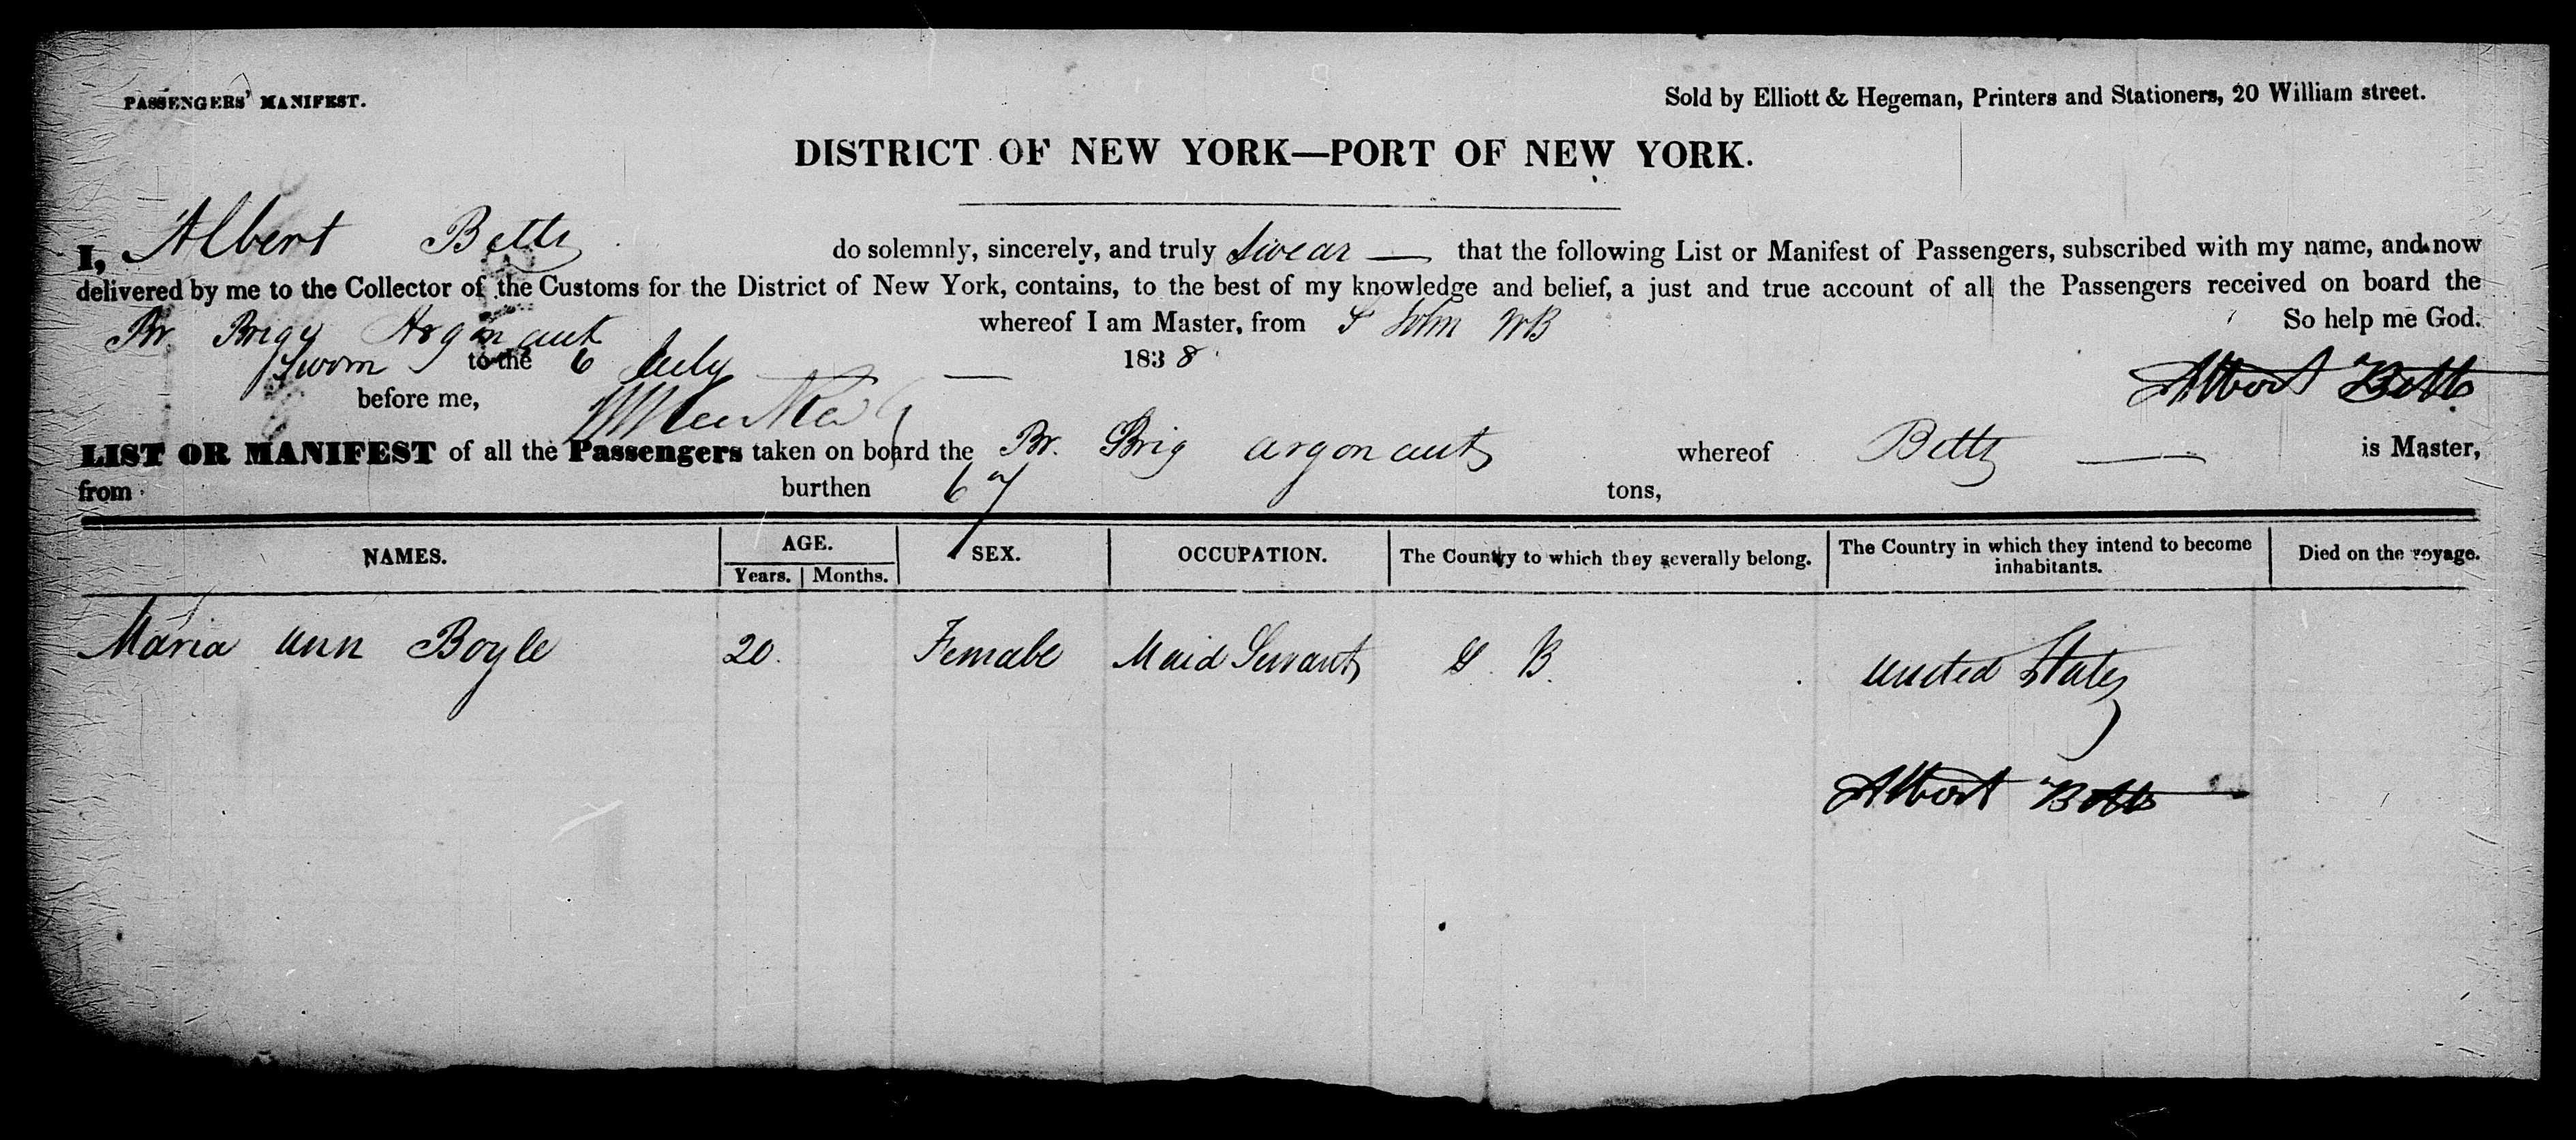 PASSENGERS' MANIFEST.
Sold by Elliott & Hegeman, Printers and Stationers, 20 William street.
DISTRICT OF NEW YORK—PORT OF NEW YORK.
I, Albert Betts do solemnly, sincerely, and truly Swear — that the following List or Manifest of Passengers, subscribed with my name, and now
delivered by me to the Collector of the Customs for the District of New York, contains, to the best of my knowledge and belief, a just and true account of all the Passengers received on board the
Br. Brig Argonaut whereof I am Master, from St John NB So help me God.
Sworn to the 6 July — 1838
before me, Albert Betts
LIST OR MANIFEST of all the Passengers taken on board the Br. Brig argonaut whereof Betts — is Master,
from burthen 67 tons,
NAMES. AGE. Years. Months. SEX. OCCUPATION. The Country to which they severally belong. The Country in which they intend to become inhabitants. Died on the voyage.
Maria ann Boyle 20. Female Maid Servant G. B. united States
Albert Betts